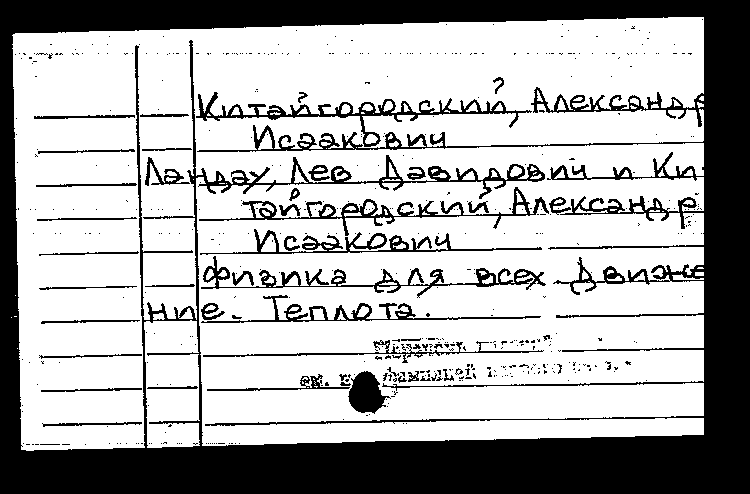 Китайгородский, Александр
Исаакович
Ландау, Лев Давидович и Ки-
тайгородский, Александр
Исаакович
Физика для всех. Движе
ние. Теплота.
см. фамилией